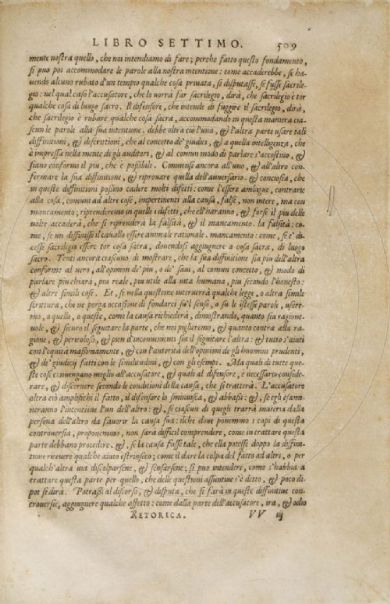 LIBRO SETTIMO. 509
mente nostra quello, che noi intendiamo di fare; perche fatto questo fondamento,
si può poi accommodare le parole alla nostra intentione: come accaderebbe, se ha-
uendo alcuno rubato d'un tempio qualche cosa priuata, si disputasse, se fusse sacrile-
gio: nel qual caso l'accusatore, che lo vorrà far sacrilego, dirà, che sacrilegio è tor
qualche cosa di luogo sacro. Il difensore, che intende di fuggire il sacrilegio, dirà,
che sacrilegio è rubare qualche cosa sacra, accommodando in questa maniera cia-
scuno le parole alla sua intentione. debbe oltra ciò l'una, & l'altra parte usare tali
diffinitioni, & descrittioni, che al concetto de' giudici, & a quella intelligenza, che
è impressa nella mente de gli auditori, & al commun modo di parlare l'accostino, &
siano conformi il più, che è possibile. Communi è ancora all'uno, & all'altro con-
fermare la sua diffinitione, & riprouare quella dell'auersario. & concosia, che
in queste diffinitioni possino cadere molti difetti: come l'essere ambigue, contrarie
alla cosa, comuni ad altre cose, impertinenti alla causa, false, non intere, ma con
mancamento; riprenderemo in quelle i difetti, che ell'haranno, & forse il più delle
uolte accaderà, che si riprenderà la falsità, & il mancamento. la falsità: co-
me, se un diffinisse il cauallo essere animale rationale. mancamento: come, s'e' di-
cesse sacrilegio essere tor cosa sacra, douendosi aggiugnere a cosa sacra, di luogo
sacro. Tenti ancora ciascuno di mostrare, che la sua diffinitione sia più dell'altra
conforme al uero, all'openion de' più, o de' saui, al comun concetto, & modo di
parlare più chiara, più reale, più utile alla uita humana, più secondo l'honesto:
& altre simili cose. Et, se nella questione interuerrà qualche legge, o altra simile
scrittura, che ne porga occasione di fondarci su'l senso, o su le istesse parole, usere-
mo, a quello, o queste, come la causa richiederà, dimostrando, quanto sia ragione-
uole, & sicuro il seguitare la parte, che noi piglieremo, & quanto contra alla ra-
gione, & pericoloso, & pien d'inconuenienti sia il seguitare l'altra: & tutto s'aiuti
con l'equità massimamente, & con l'autorità dell'openioni de gli huomini prudenti,
& de' giudicij fatti con le similitudini, & con gli essempi. Ma quali di tutte que-
ste cose si conuengano meglio all'accusatore, quali al difensore, è necessario conside-
rare, & discernere secondo le conditioni della causa, che si tratterà. L'accusatore
oltra ciò amplifichi il fatto, il difensore lo sminuisca, & abbassi: &, se egli esa-
mineranno l'intentione l'un dell'altro: &, se ciascun di quegli trarrà materia dalla
persona dell'altro da fauorir la causa sua: ilche doue ponemmo i capi di questa
controuersia, proponemmo, non sarà difficil comprendere, come in trattare questa
parte debbano procedere. &, se la causa fusse tale, che ella potesse dopo la diffini-
tione riceuere qualche aiuto estrinseco; come il dare la colpa del fatto ad altro, o per
qualch'altra via discolparsene, & scusarsene; si può intendere, come s'habbia a
trattare questa parte per quello, che delle questioni assuntiue s'è ditto, & poco di-
poi si dirà. Potrassi al discorso, & disputa, che si farà in queste diffinitiue con-
trouersie, aggiugnere qualche affetto: come dalla parte dell'accusatore, ira, & odio
RETORICA. VV iij